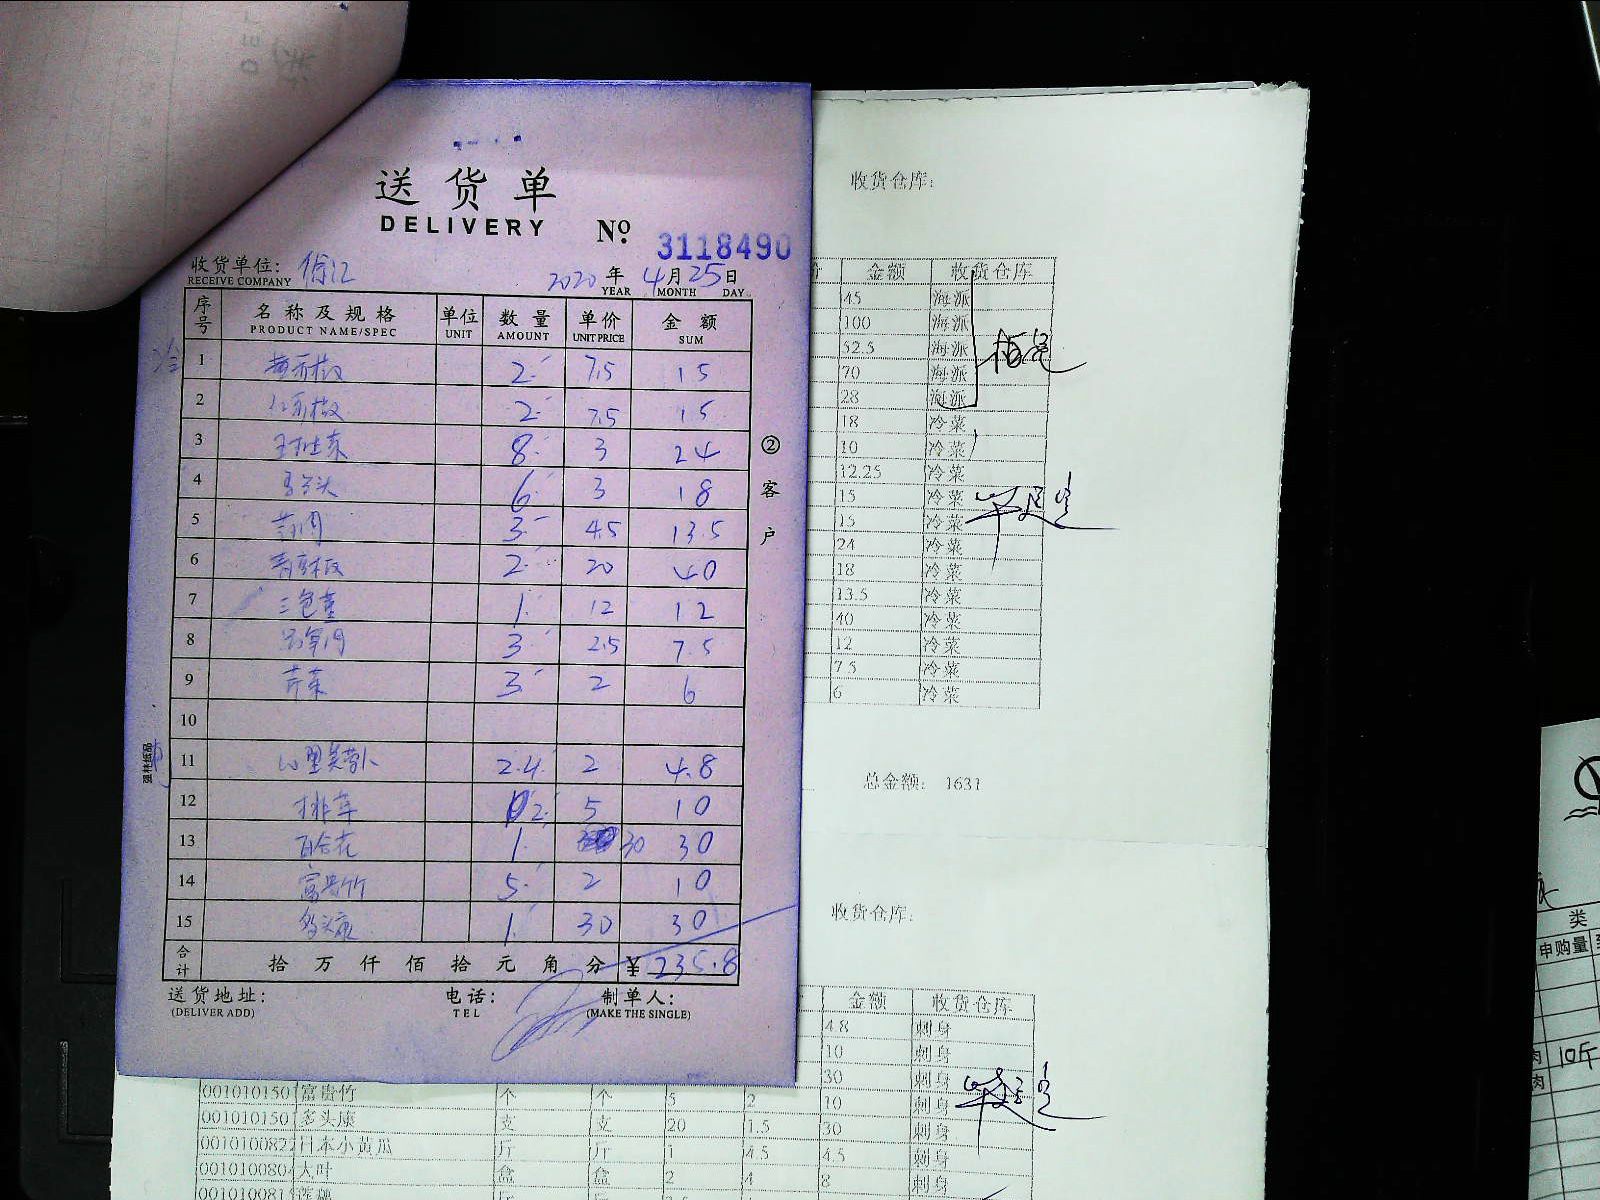 送货单
DELIVERY
№ 3118490
收货单位: 徐汇 2020年4月25日
RECEIVE COMPANY YEAR MONTH DAY
序号 名称及规格 单位 数量 单价 金额
PRODUCT NAME/SPEC UNIT AMOUNT UNIT PRICE SUM
1 黄彩椒 2 7.5 15
2 红彩椒 2 7.5 15
3 8 3 24
4 6 3 18
5 3 4.5 13.5
6 2 20 40
7 三色堇 1 12 12
8 3 2.5 7.5
9 芹菜 3 2 6
10
11 心里美萝卜 2.4 2 4.8
12 排草 2 5 10
13 百合花 1 30 30
14 富贵竹 5 2 10
15 多头康 1 30 30
合计 拾万仟佰拾元角分 ¥ 235.8
送货地址: 电话: 制单人:
(DELIVER ADD) TEL (MAKE THE SINGLE)
②客户
强林纸品
收货仓库:
金额 收货仓库
45 海派
100 海派
52.5 海派
70 海派
28 海派
18 冷菜
10 冷菜
12.25 冷菜
15 冷菜
15 冷菜
24 冷菜
18 冷菜
13.5 冷菜
40 冷菜
12 冷菜
7.5 冷菜
6 冷菜
总金额: 1631
收货仓库:
金额 收货仓库
4.8 刺身
10 刺身
30 刺身
001010150 富贵竹 个 个 5 2 10 刺身
001010150 多头康 支 支 20 1.5 30 刺身
0010100822 日本小黄瓜 斤 斤 1 4.5 4.5 刺身
001010080 大叶 盒 盒 2 4 8 刺身
类
申购量
10斤